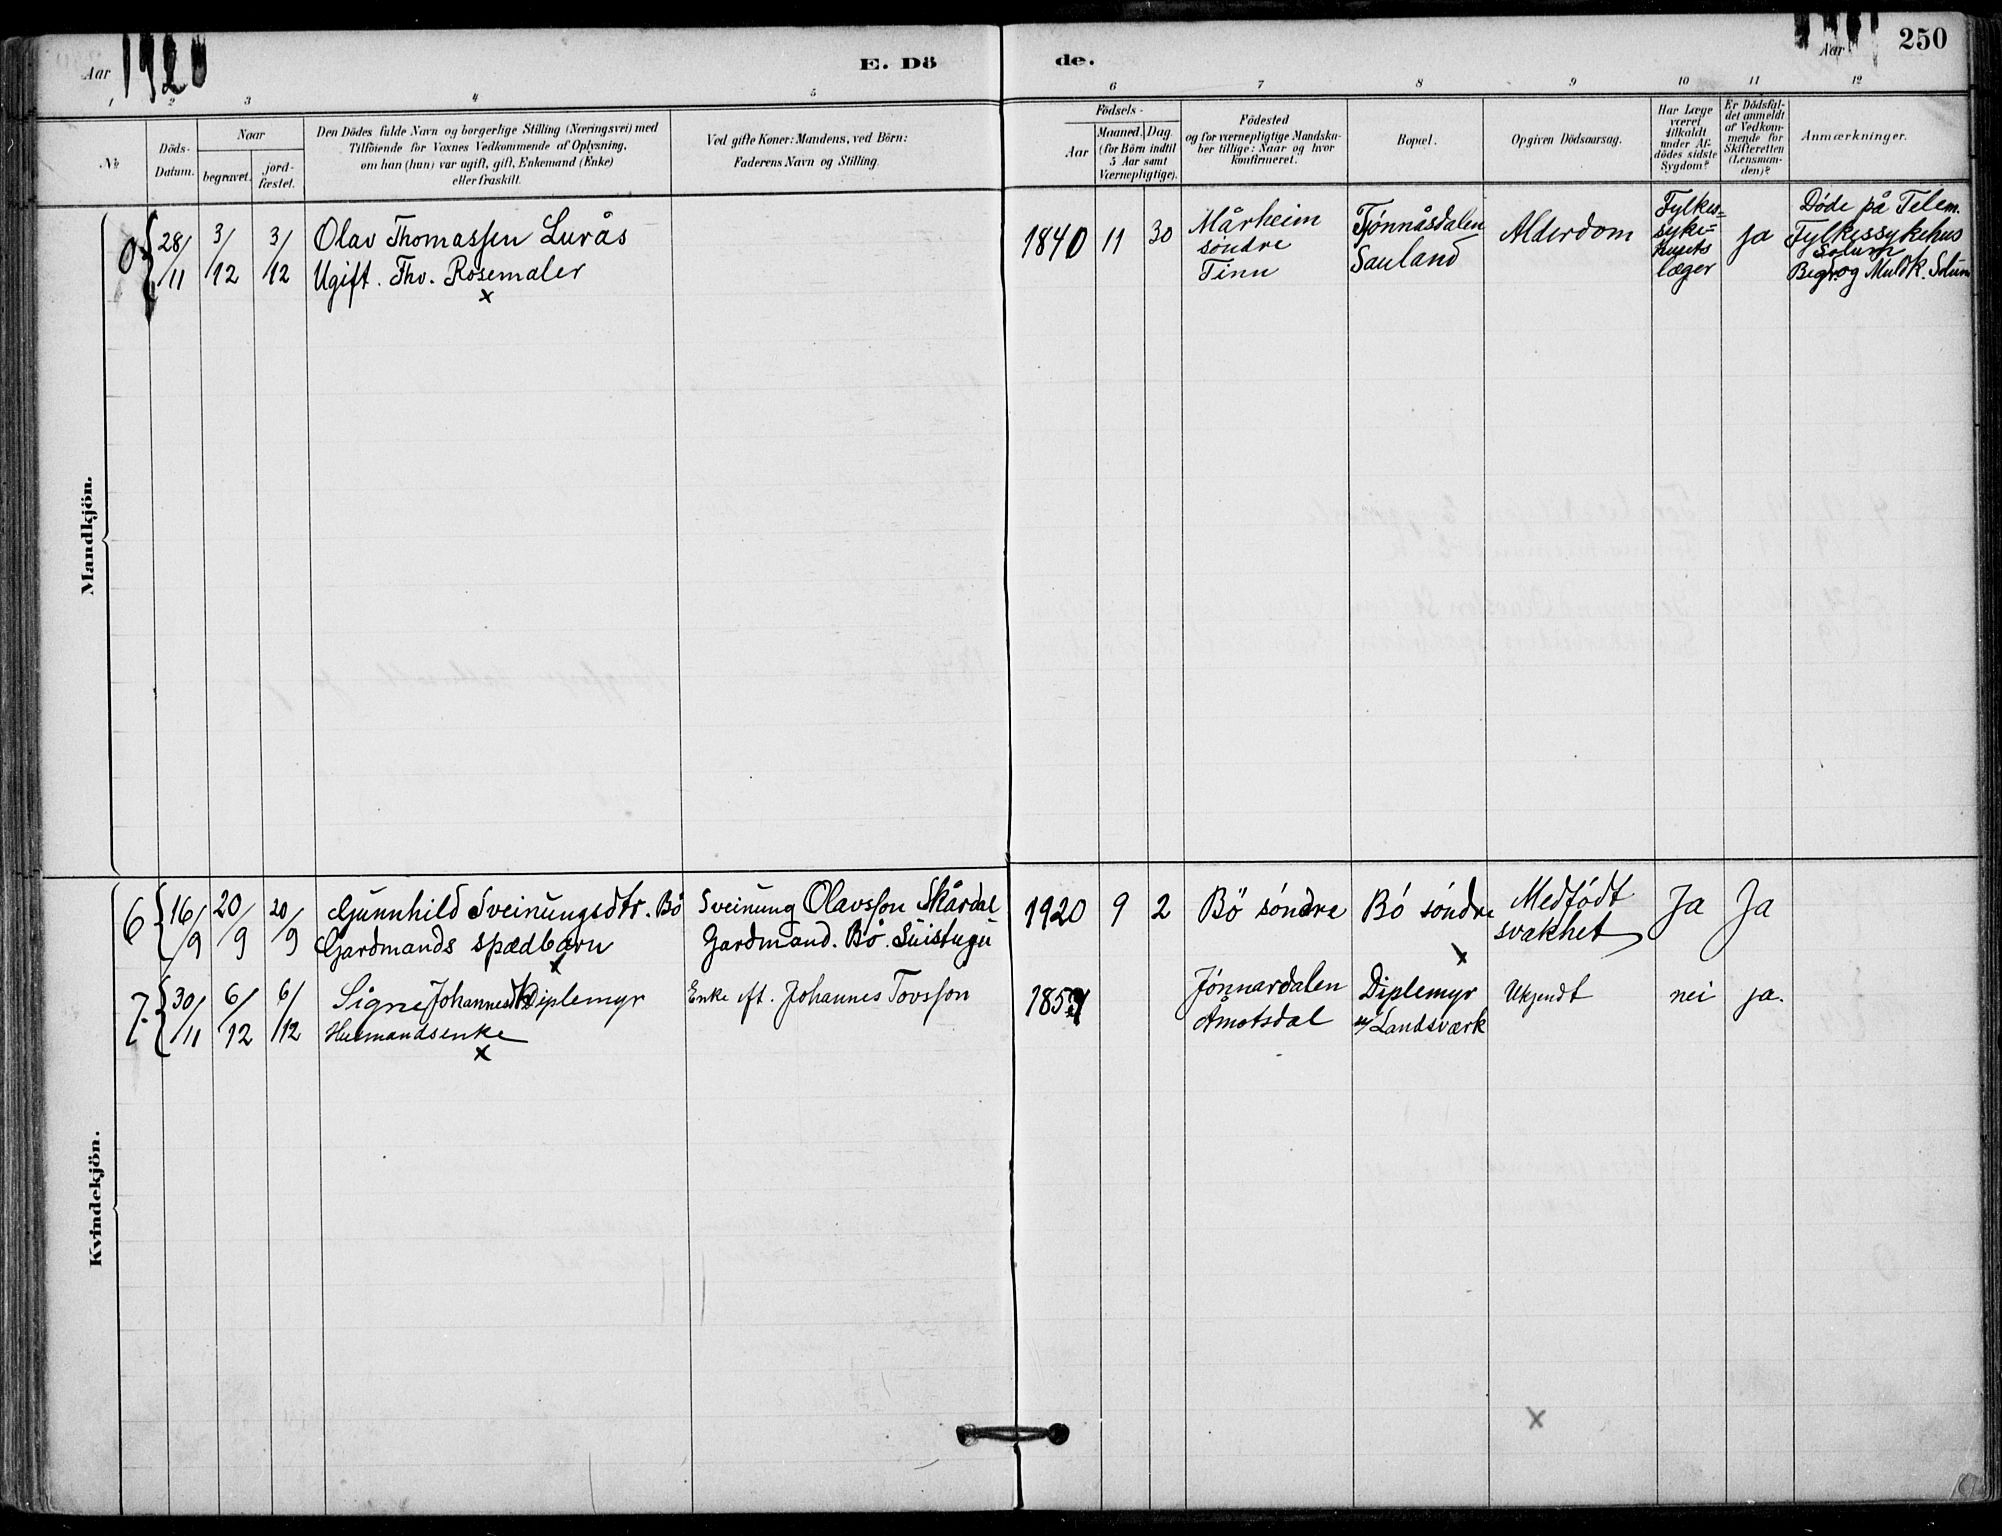 Aar 1920
E. Döde.
Aar
250
1 2 3 4 5 6 7 8 9 10 11 12
№
Döds-Datum.
Naar
begravet.
jord-fæstet.
Den Dödes fulde Navn og borgerlige Stilling (Næringsvei) med
Tilföiende for Voxnes Vedkommende af Oplysning,
om han (hun) var ugift, gift, Enkemand (Enke)
eller fraskilt.
Ved gifte Koner: Mandens, ved Börn:
Faderens Navn og Stilling.
Födsels-
Aar
Maaned. Dag.
(for Börn indtil
5 Aar samt
Værnepligtige).
Födested
og for værnepligtige Mandska-
ber tillige: Naar og hvor
konfirmeret.
Bopæl.
Opgiven Dödsaarsag.
Har Læge
været
tilkaldt
under Af-
dödes sidste
Sygdom?
Er Dödsfal-
det anmeldt
af Vedkom-
mende for
Skifteretten
(Lensman-
den)?
Anmærkninger.
Mandkjön.
28/11 3/12 3/12
Olav Thomassen Lurås
Ugift. Fhv. Rosemaler
x
1840 11 30
Mårheim
søndre
Tinn
Tjønnåsdalen
Sauland
Alderdom
Fylkes=
syke=
husets
læger
ja
Døde på Telem.
Fylkessykehus
Solum
Begr. og Muldk. Solum
Kvindekjön.
6 16/9 20/9 20/9
Gunnhild Sveinungsdtr. Bø
Gardmands spædbarn
x
Sveinung Olavsson Skårdal
Gardmand. Bø. Suistugu
1920 9 2
Bø søndre
Bø søndre
x
Medfødt
svakhet
Ja
Ja
7. 30/11 6/12 6/12
Signe Johannesdtr Diplemyr
Husmandsenke
x
Enke eft. Johannes Tovsson
Jønnardalen
Åmotsdal
Diplemyr
u/ Landsværk
Ukjendt
nei
ja.
x